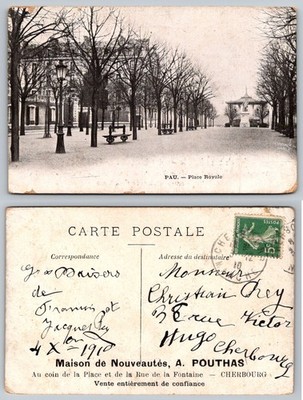 PAU. — Place Royale
CARTE POSTALE
Correspondance
Adresse du destinataire
Gros Baisers
de
François et
Jacqueline
4 X - 1910
Monsieur
Christian Prey
Rue Victor
Hugo
Cherbourg
5
Maison de Nouveautés, A. POUTHAS
Au coin de la Place et de la Rue de la Fontaine — CHERBOURG
Vente entièrement de confiance